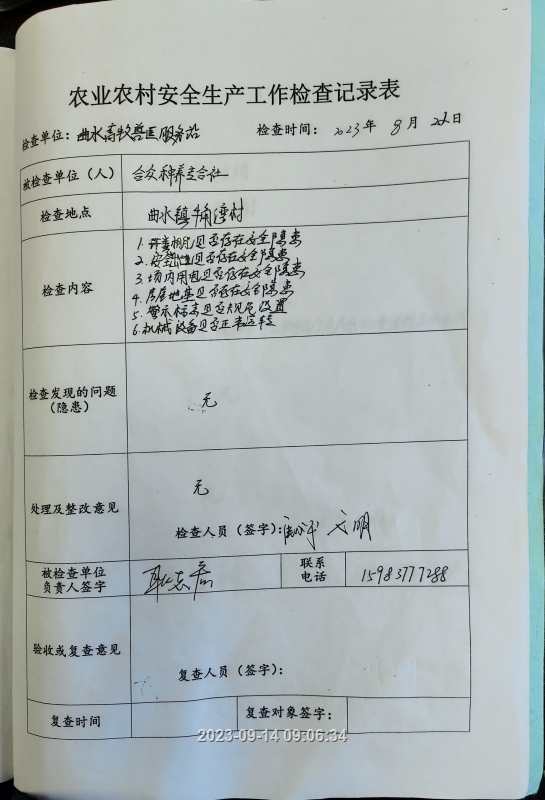 农业农村安全生产工作检查记录表
检查单位：曲水畜牧兽医服务站 检查时间：2023年 8月 22日
被检查单位（人） 合众种养专合社
检查地点 曲水镇牛角湾村
检查内容
1. 是否存在安全隐患
2. 是否存在安全隐患
3. 场内用电是否存在安全隐患
4. 房屋地基是否存在安全隐患
5. 警示标志是否规范设置
6. 机械设备是否正常运转
检查发现的问题
（隐患）
无
处理及整改意见
无
检查人员（签字）： 明
被检查单位
负责人签字
志
联系
电话
15983777288
验收或复查意见
复查人员（签字）：
复查时间 复查对象签字：
2023-09-14 09:06:34